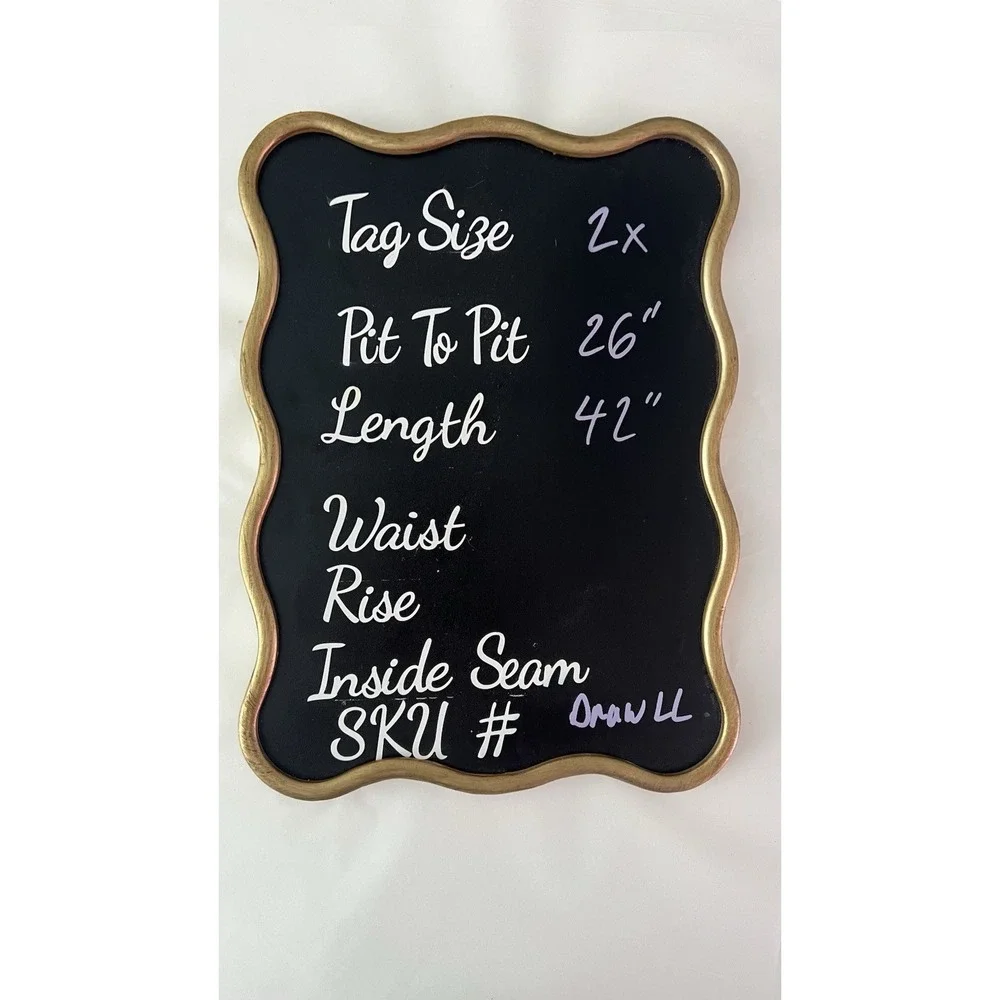 Tag Size 2x
Pit To Pit 26"
Length 42"
Waist
Rise
Inside Seam
SKU # Draw LL